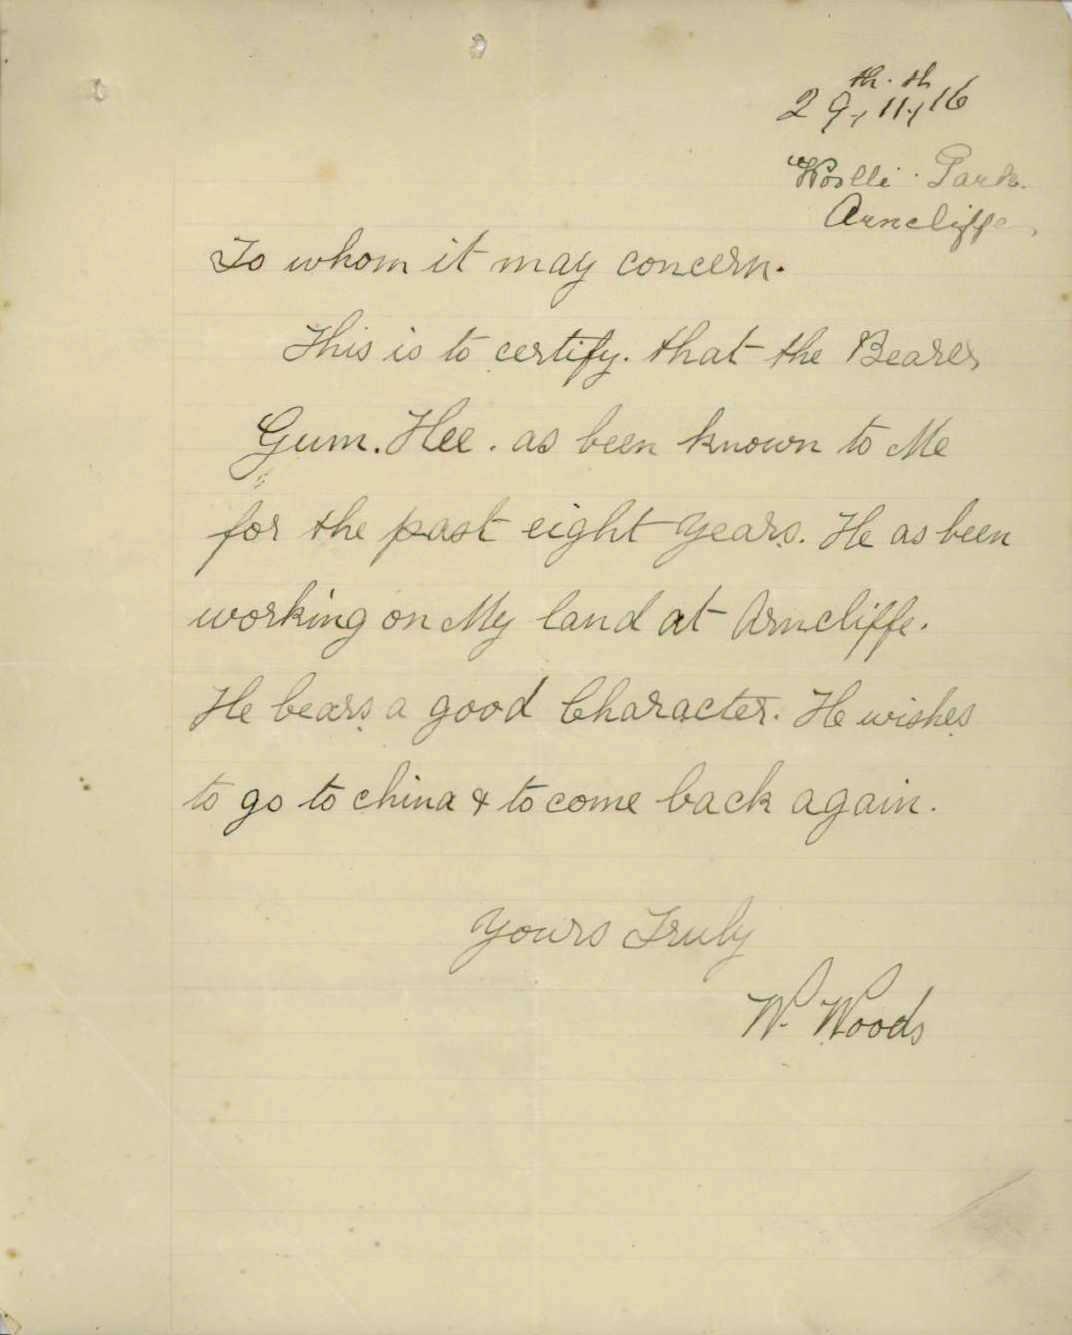 29th, 11th, 16
Wolli Park.
Arncliffe,
To whom it may concern.
This is to certify. that the Bearer
Gum. Hee. as been known to Me
for the past eight years. He as been
working on My land at Arncliffe.
He bears a good Character. He wishes
to go to china & to come back again.
Yours Truly
W. Woods